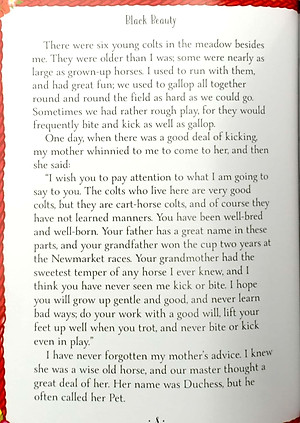 Black Beauty
There were six young colts in the meadow besides
me. They were older than I was; some were nearly as
large as grown-up horses. I used to run with them,
and had great fun; we used to gallop all together
round and round the field as hard as we could go.
Sometimes we had rather rough play, for they would
frequently bite and kick as well as gallop.
One day, when there was a good deal of kicking,
my mother whinnied to me to come to her, and then
she said:
“I wish you to pay attention to what I am going to
say to you. The colts who live here are very good
colts, but they are cart-horse colts, and of course they
have not learned manners. You have been well-bred
and well-born. Your father has a great name in these
parts, and your grandfather won the cup two years at
the Newmarket races. Your grandmother had the
sweetest temper of any horse I ever knew, and I
think you have never seen me kick or bite. I hope
you will grow up gentle and good, and never learn
bad ways; do your work with a good will, lift your
feet up well when you trot, and never bite or kick
even in play.”
I have never forgotten my mother’s advice. I knew
she was a wise old horse, and our master thought a
great deal of her. Her name was Duchess, but he
often called her Pet.